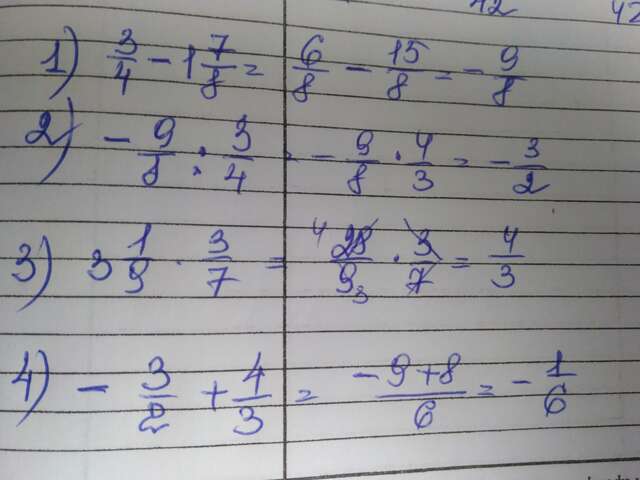 42 42
1) 3/4 - 1 7/8 = 6/8 - 15/8 = - 9/8
2) - 9/8 : 3/4 = - 9/8 · 4/3 = - 3/2
3) 3 1/9 · 3/7 = 4 28/9 3 · 3/7 = 4/3
4) - 3/2 + 4/3 = -9+8/6 = - 1/6